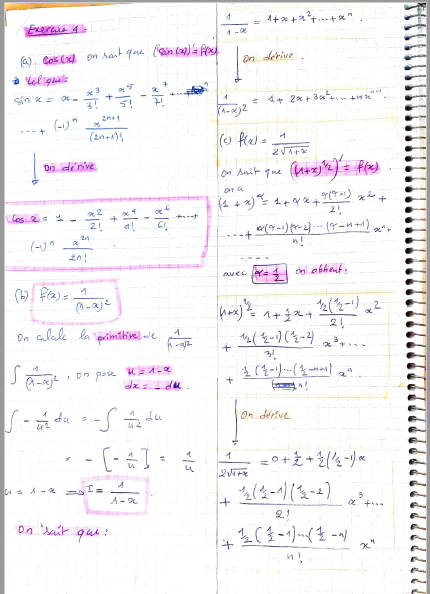 Exercice 4 :
(a). Cos(x) on sait que (sin(x))' = f(x)
tel que :
sin x = x - x³/3! + x⁵/5! - x⁷/7! + ...
... + (-1)ⁿ x²ⁿ⁺¹/(2n+1)!
On dérive
Cos x = 1 - x²/2! + x⁴/4! - x⁶/6! + ... +
(-1)ⁿ x²ⁿ/2n!
(b) f(x) = 1/(1-x)²
On calcule la primitive de 1/(1-x)²
∫ 1/(1-x)² , on pose u = 1-x
dx = - du
∫ - 1/u² du = - ∫ 1/u² du
= - [- 1/u] = 1/u
u = 1-x ⟹ I = 1/1-x .
On sait que :
1/1-x = 1+x+x²+...+xⁿ .
On dérive .
1/(1-x)² = 1+2x+3x²+...+nxⁿ⁻¹
(c) f(x) = 1/2√1+x
On sait que ((1+x)^1/2)' = f(x)
on a
(1+x)^α = 1+αx+ α(α-1)/2! x² +
...+ α(α-1)(α-2)...(α-n+1)/n! xⁿ +
....
avec α = 1/2 on obtient :
(1+x)^1/2 = 1 + 1/2 x + 1/2(1/2-1)/2! x²
+ 1/2(1/2-1)(1/2-2)/3! x³ + ...
+ 1/2(1/2-1)...(1/2-n+1)/n! xⁿ
On dérive
1/2√1+x = 0 + 1/2 + 1/2(1/2-1)x
+ 1/2(1/2-1)(1/2-2)/2! x³ + ...
+ 1/2(1/2-1)...(1/2-n)/n! xⁿ